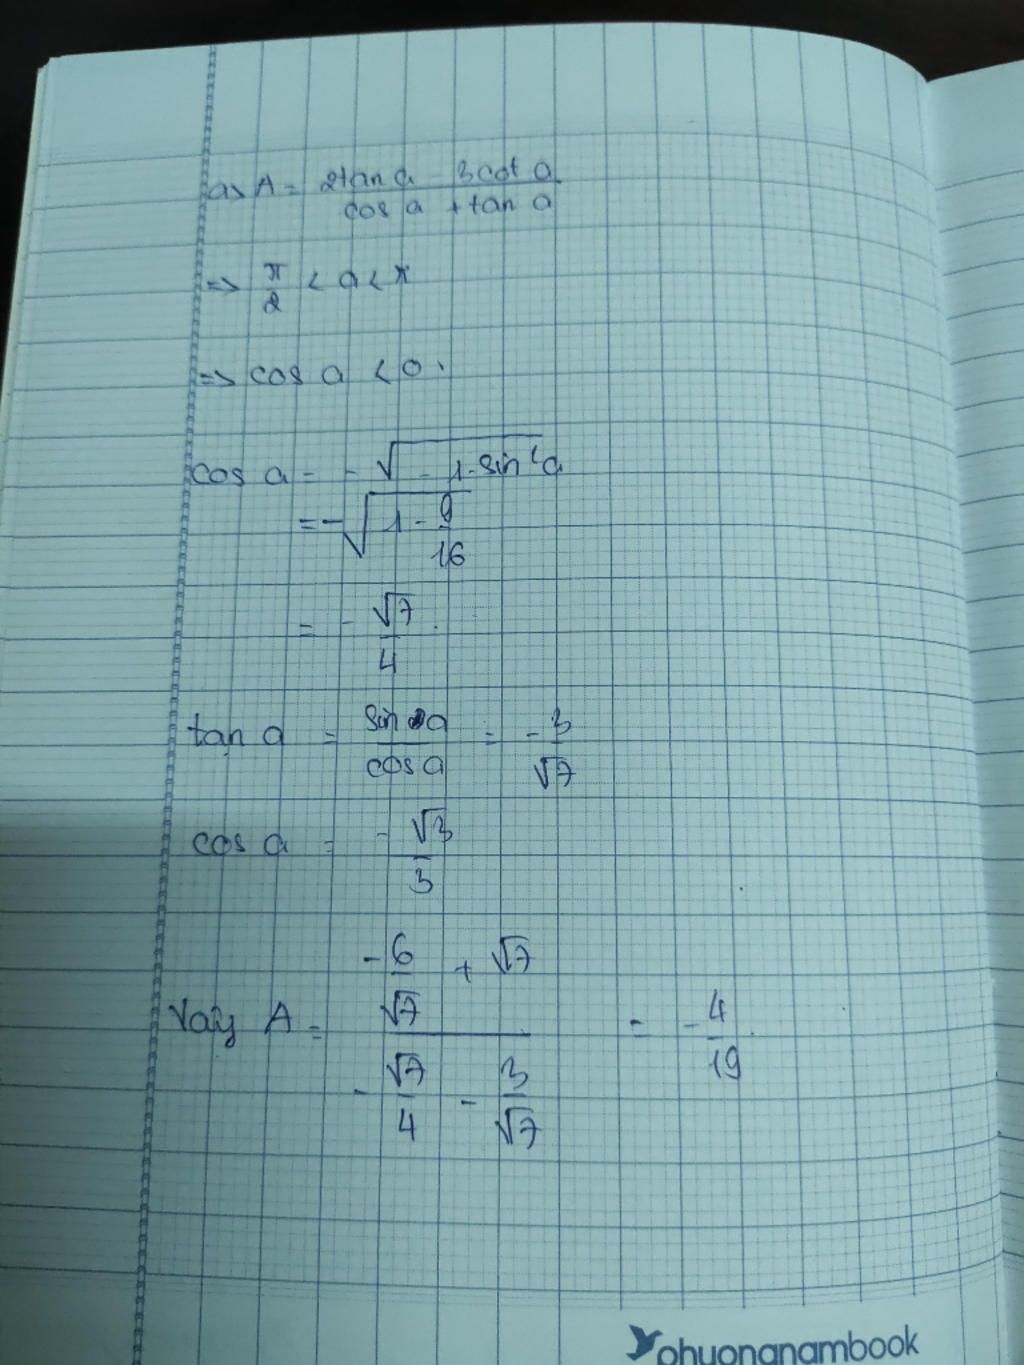 a> A = \frac{2tan a - 3cot a}{cos a + tan a}
=> \frac{π}{2} < a < π
=> cos a < 0.
cos a = - \sqrt{- 1 - sin^2 a}
= - \sqrt{1 - \frac{9}{16}}
= - \frac{\sqrt{7}}{4}.
tan a = \frac{sin a}{cos a} = - \frac{3}{\sqrt{7}}
cos a = - \frac{\sqrt{3}}{3}
Vậy A = \frac{- \frac{6}{\sqrt{7}} + \sqrt{7}}{- \frac{\sqrt{7}}{4} - \frac{3}{\sqrt{7}}} = - \frac{4}{19}
phuongnambook